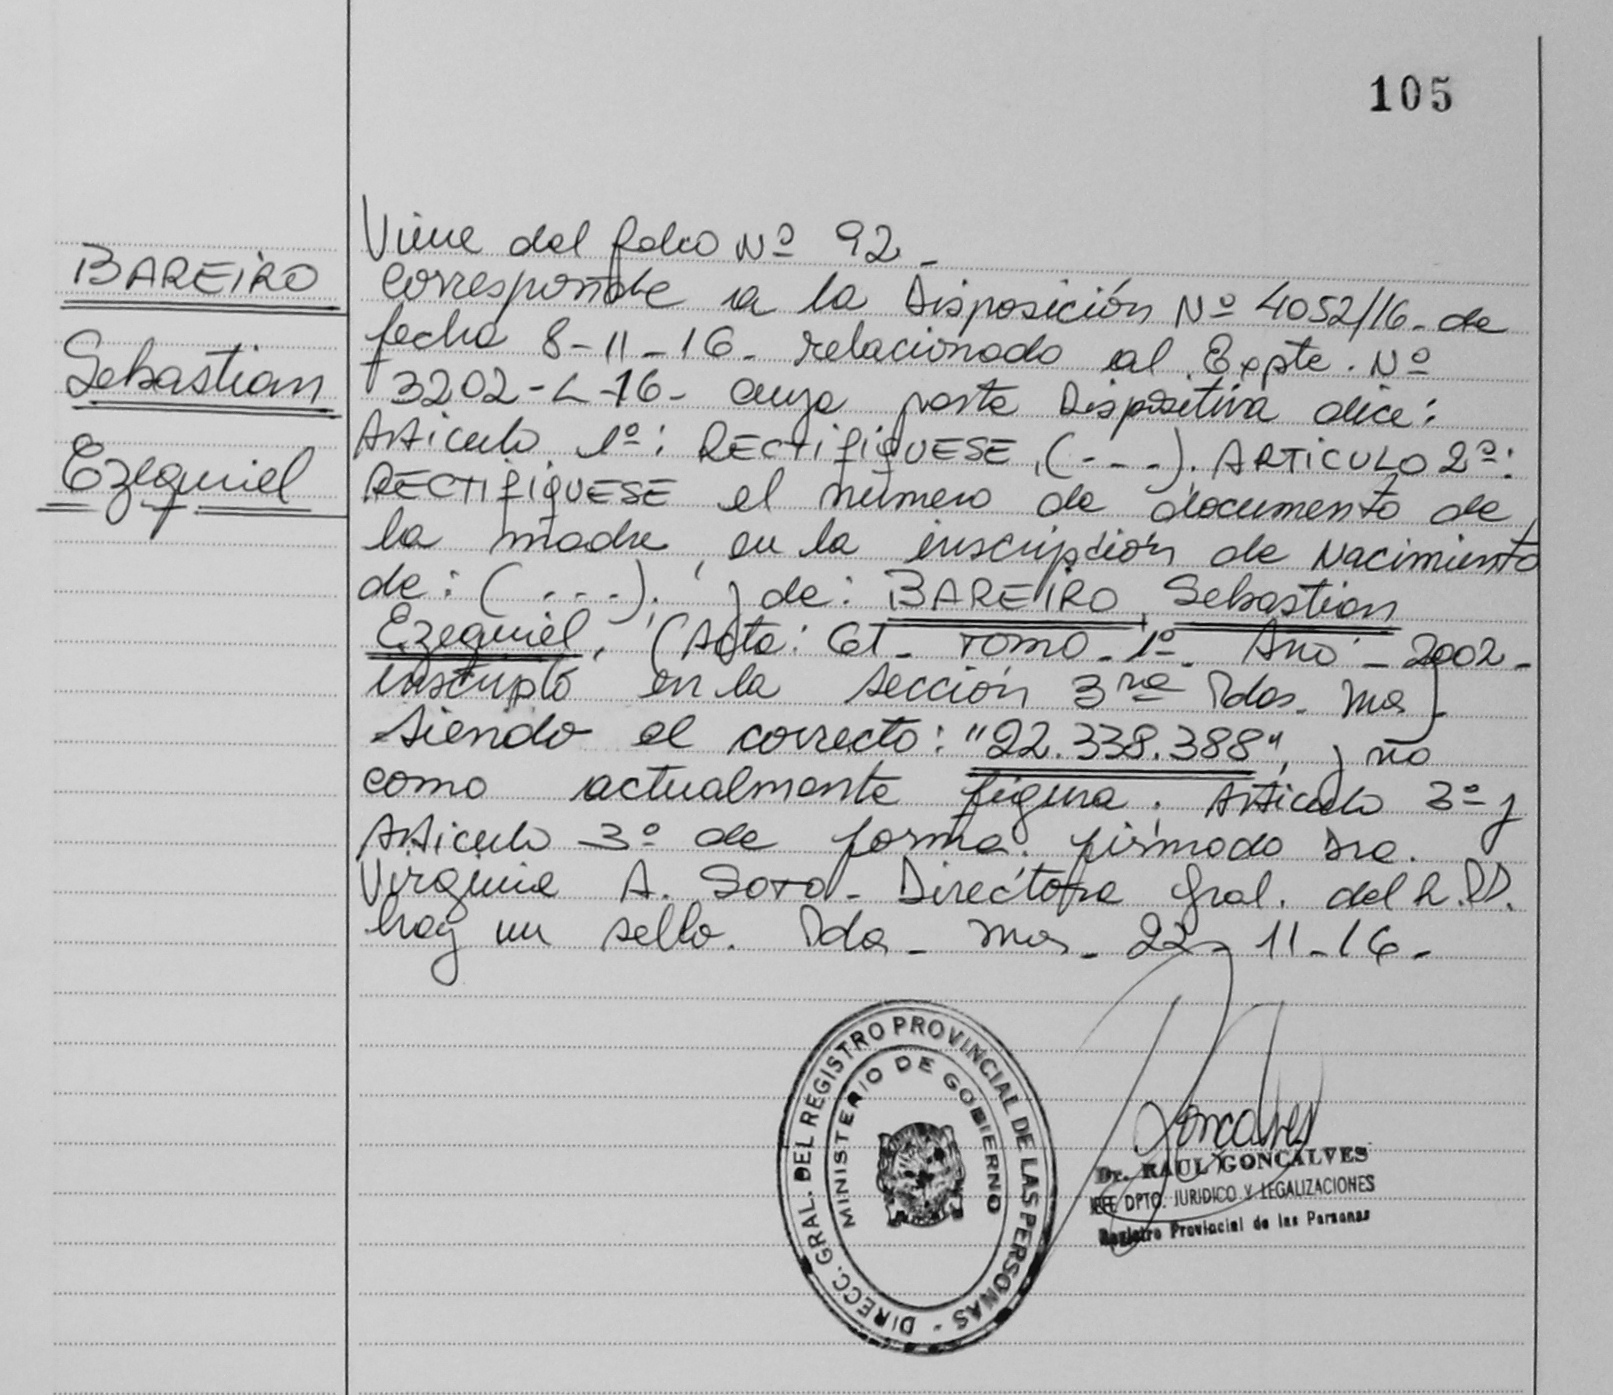 105
BAREIRO
Sebastian
Ezequiel
Viene del folio Nº 92 -
corresponde a la Disposición Nº 4052/16 - de
fecha 8-11-16 - relacionado al Expte. Nº
3202-L-16 - cuya parte Dispositiva dice:
Articulo 1º: RECTIFIQUESE (---). ARTICULO 2º:
RECTIFIQUESE el número de documento de
la madre, en la inscripción de Nacimiento
de: (---). y de: BAREIRO, Sebastian
Ezequiel. (Acta: 61 - Tomo - 1º - Año - 2002 -
inscripto en la Sección 3ra Pdas. Mnes)
siendo el correcto: "22.338.388", y no
como actualmente figura. Articulo 3º y
Articulo 3º de forma. firmado Dra.
Virginia A. Soto - Directora Gral. del R.P.P.
hay un sello. Pdas - Mnes - 22-11-16 -
DIRECC. GRAL. DEL REGISTRO PROVINCIAL DE LAS PERSONAS -
MINISTERIO DE GOBIERNO
Goncalves
Dr. RAUL GONCALVES
JEFE DPTO. JURIDICO Y LEGALIZACIONES
Registro Provincial de las Personas